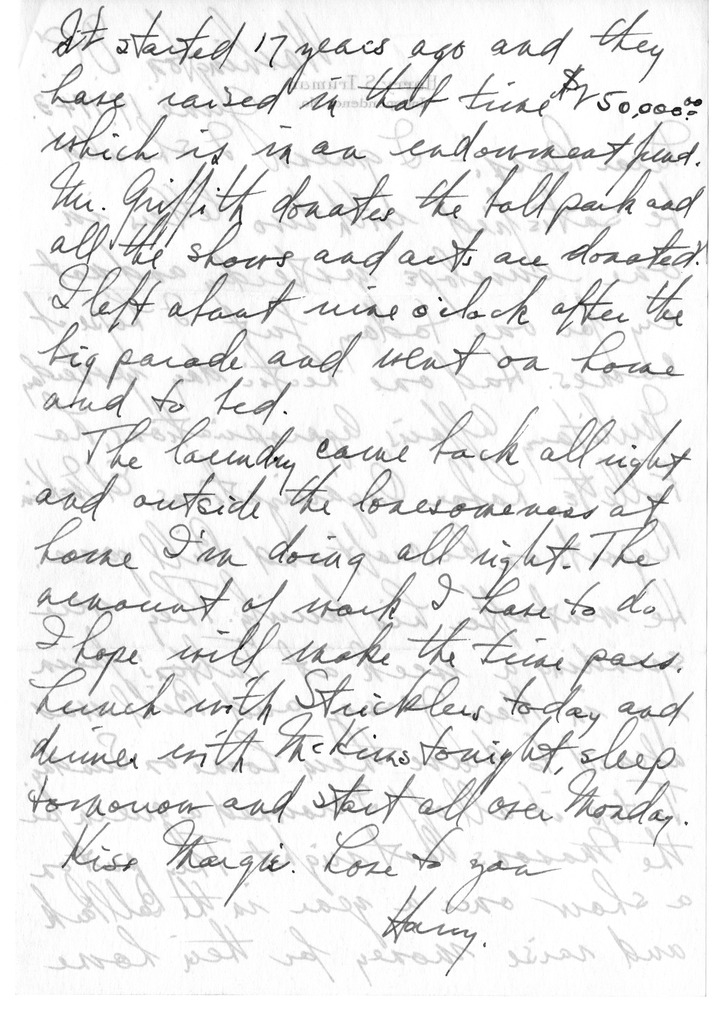 It started 17 years ago and they
have raised in that time $150,000.00
which is in an endowment fund.
Mr. Griffith donates the ball park and
all the shows and acts are donated.
I left about nine o'clock after the
big parade and went on home
and to bed.
The laundry came back all right
and outside the lonesomeness at
home I'm doing all right. The
amount of work I have to do
I hope will make the time pass.
Lunch with Stricklers today and
dinner with McKims tonight, sleep
tomorrow and start all over Monday.
Kiss Margie. Love to you
Harry.